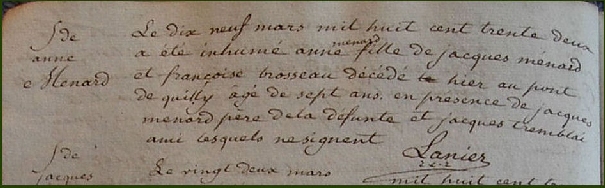 S de
anne
Menard
Le dix neuf mars mil huit cent trente deux
a été inhumé anne menard fille de jacques ménard
et françoise brosseau décédé hier au pont
de quilly agé de sept ans. en présence de jacques
menard pere de la defunte et jacques tremblai
ami lesquels ne signent
Lanier
S de
jacques
Le vingt deux mars mil huit cent tr